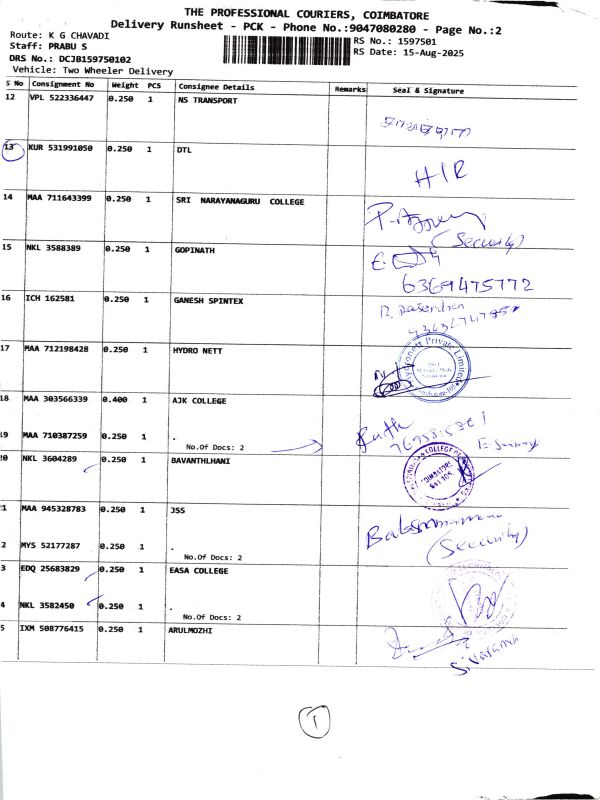 THE PROFESSIONAL COURIERS, COIMBATORE
Delivery Runsheet - PCK - Phone No.:9047080280 - Page No.:2
Route: K G CHAVADI
RS No.: 1597501
Staff: PRABU S
RS Date: 15-Aug-2025
DRS No.: DCJB159750102
Vehicle: Two Wheeler Delivery
S No Consignment No Weight PCS Consignee Details Remarks Seal & Signature
12 VPL 522336447 0.250 1 NS TRANSPORT
13 KUR 531991050 0.250 1 DTL
H/R
14 MAA 711643399 0.250 1 SRI NARAYANAGURU COLLEGE
(Security)
15 NKL 3588389 0.250 1 GOPINATH
6369475772
16 ICH 162581 0.250 1 GANESH SPINTEX
R. Rasendran
17 MAA 712198428 0.250 1 HYDRO NETT
Hydronett Private Limited
18 MAA 303566339 0.400 1 AJK COLLEGE
19 MAA 710387259 0.250 1 .
No.Of Docs: 2
20 NKL 3604289 0.250 1 BAVANTHLHANI
COIMBATORE
641 105
1 MAA 945328783 0.250 1 JSS
(Security)
2 MYS 52177287 0.250 1 .
No.Of Docs: 2
3 EDQ 25683829 0.250 1 EASA COLLEGE
4 NKL 3582450 0.250 1 .
No.Of Docs: 2
5 IXM 508776415 0.250 1 ARULMOZHI
Sivaraman
1